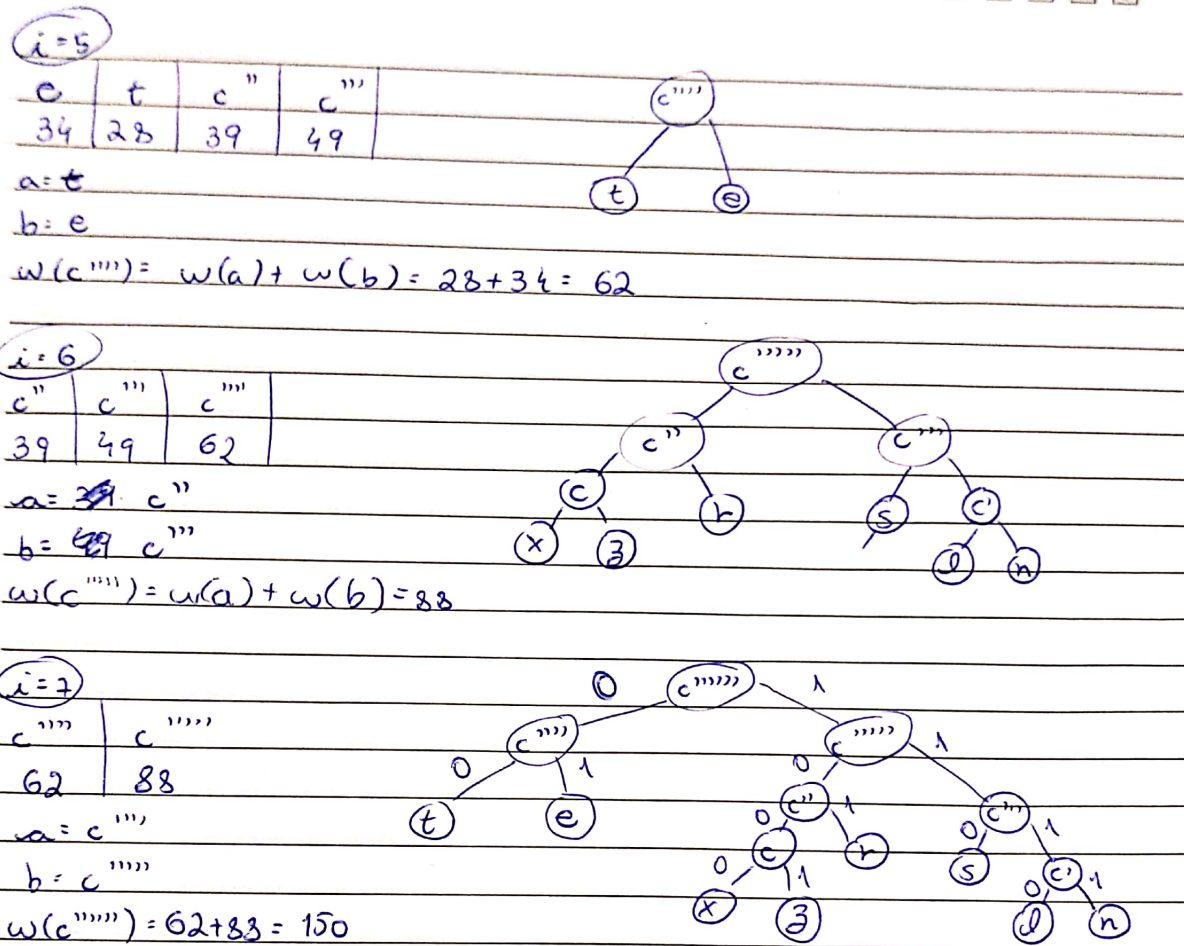 i=5
e | t | c'' | c'''
34 | 28 | 39 | 49
a= t
b= e
w(c'''')= w(a)+ w(b)= 28+34= 62
c''''
t e
i=6
c'' | c''' | c''''
39 | 49 | 62
a= c''
b= c'''
w(c''''')= w(a)+ w(b)=88
c'''''
c'' c'''
c r s c'
x z l n
i=7
c'''' | c'''''
62 | 88
a= c''''
b= c'''''
w(c'''''')=62+88= 150
0 c'''''' 1
c'''' c'''''
0 1 0 1
t e c'' c'''
0 1 0 1
c r s c'
0 1 0 1
x z l n